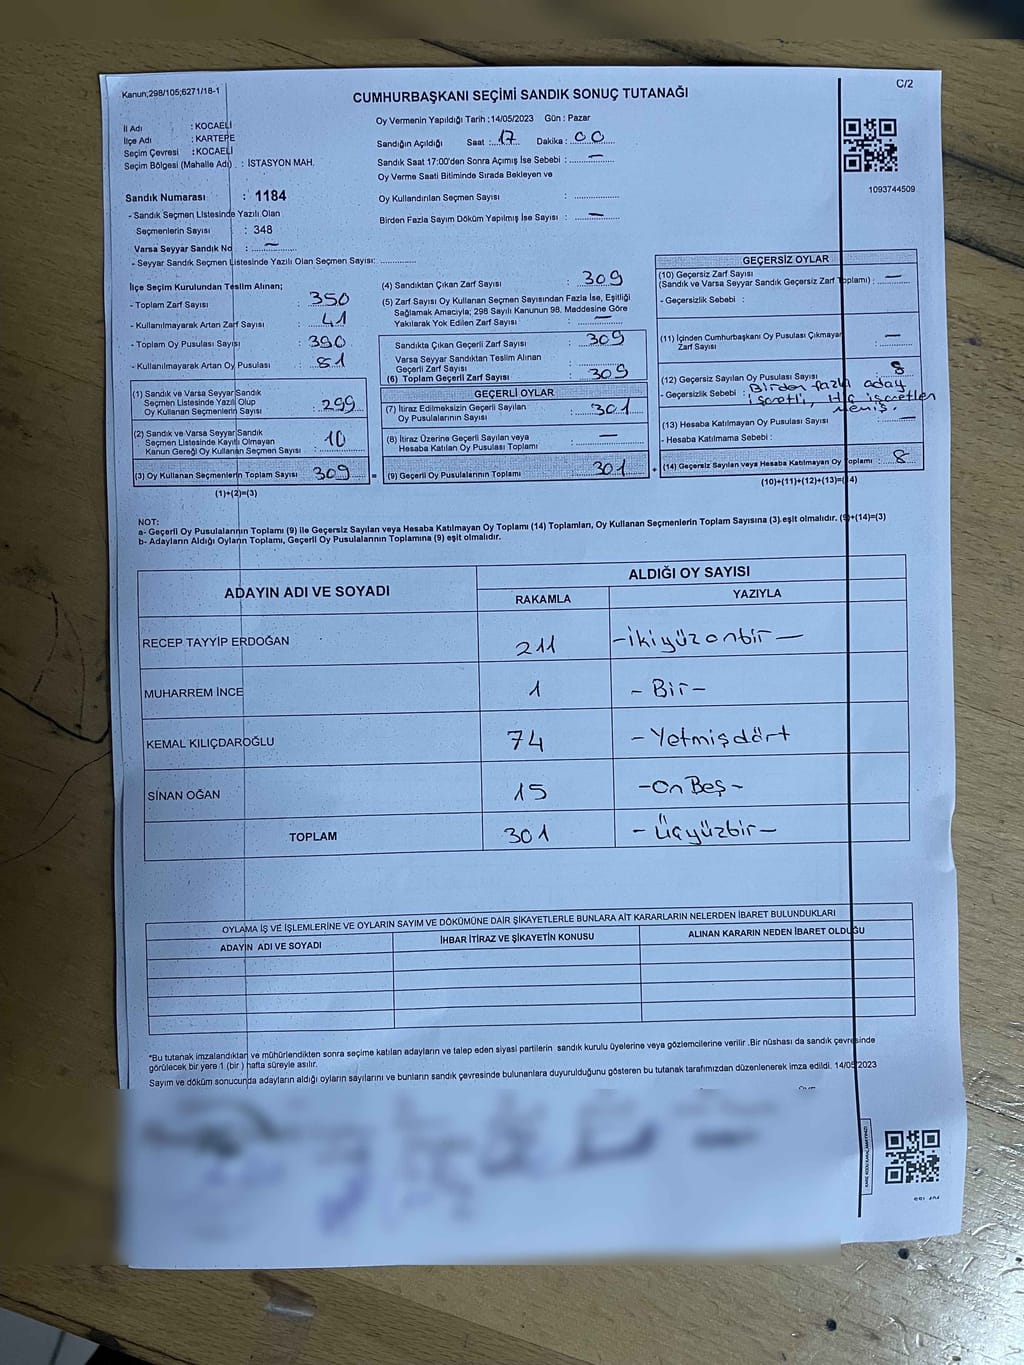 Kanun;298/105;6271/18-1
C/2
CUMHURBAŞKANI SEÇİMİ SANDIK SONUÇ TUTANAĞI
İl Adı : KOCAELİ
İlçe Adı : KARTEPE
Seçim Çevresi : KOCAELİ
Seçim Bölgesi (Mahalle Adı) . : İSTASYON MAH.
Sandık Numarası : 1184
- Sandık Seçmen Listesinde Yazılı Olan
Seçmenlerin Sayısı : 348
Varsa Seyyar Sandık No : —
- Seyyar Sandık Seçmen Listesinde Yazılı Olan Seçmen Sayısı: ............
Oy Vermenin Yapıldığı Tarih :14/05/2023 Gün : Pazar
Sandığın Açıldığı Saat : 17 Dakika : 00
Sandık Saat 17:00'den Sonra Açımış İse Sebebi : —
Oy Verme Saati Bitiminde Sırada Bekleyen ve
Oy Kullandırılan Seçmen Sayısı : ............
Birden Fazla Sayım Döküm Yapılmış İse Sayısı : —
1093744509
İlçe Seçim Kurulundan Teslim Alınan;
- Toplam Zarf Sayısı : 350
- Kullanılmayarak Artan Zarf Sayısı : 41
- Toplam Oy Pusulası Sayısı : 390
- Kullanılmayarak Artan Oy Pusulası : 81
(1) Sandık ve Varsa Seyyar Sandık
Seçmen Listesinde Yazılı Olup
Oy Kullanan Seçmenlerin Sayısı : 299
(2) Sandık ve Varsa Seyyar Sandık
Seçmen Listesinde Kayıtlı Olmayan
Kanun Gereği Oy Kullanan Seçmen Sayısı : 10
(3) Oy Kullanan Seçmenlerin Toplam Sayısı : 309 =
(1)+(2)=(3)
(4) Sandıktan Çıkan Zarf Sayısı : 309
(5) Zarf Sayısı Oy Kullanan Seçmen Sayısından Fazla İse, Eşitliği
Sağlamak Amacıyla; 298 Sayılı Kanunun 98. Maddesine Göre
Yakılarak Yok Edilen Zarf Sayısı : —
Sandıkta Çıkan Geçerli Zarf Sayısı : 309
Varsa Seyyar Sandıktan Teslim Alınan
Geçerli Zarf Sayısı
(6) Toplam Geçerli Zarf Sayısı : 309
GEÇERLİ OYLAR
(7) İtiraz Edilmeksizin Geçerli Sayılan
Oy Pusulalarının Sayısı : 301
(8) İtiraz Üzerine Geçerli Sayılan veya
Hesaba Katılan Oy Pusulası Toplamı : —
(9) Geçerli Oy Pusulalarının Toplamı : 301 +
GEÇERSİZ OYLAR
(10) Geçersiz Zarf Sayısı
(Sandık ve Varsa Seyyar Sandık Geçersiz Zarf Toplamı) : —
- Geçersizlik Sebebi :
(11) İçinden Cumhurbaşkanı Oy Pusulası Çıkmayan
Zarf Sayısı : —
(12) Geçersiz Sayılan Oy Pusulası Sayısı : 8
- Geçersizlik Sebebi : Birden fazla aday
işaretli, Hiç işaretlen
memiş.
(13) Hesaba Katılmayan Oy Pusulası Sayısı : —
- Hesaba Katılmama Sebebi :
(14) Geçersiz Sayılan veya Hesaba Katılmayan Oy Toplamı : 8
(10)+(11)+(12)+(13)=(14)
NOT:
a- Geçerli Oy Pusulalarının Toplamı (9) ile Geçersiz Sayılan veya Hesaba Katılmayan Oy Toplamı (14) Toplamları, Oy Kullanan Seçmenlerin Toplam Sayısına (3) eşit olmalıdır. (9)+(14)=(3)
b- Adayların Aldığı Oyların Toplamı, Geçerli Oy Pusulalarının Toplamına (9) eşit olmalıdır.
ADAYIN ADI VE SOYADI
ALDIĞI OY SAYISI
RAKAMLA YAZIYLA
RECEP TAYYİP ERDOĞAN 211 -ikiyüzonbir-
MUHARREM İNCE 1 - Bir-
KEMAL KILIÇDAROĞLU 74 - Yetmişdört
SİNAN OĞAN 15 -On Beş-
TOPLAM 301 - Üçyüzbir-
OYLAMA İŞ VE İŞLEMLERİNE VE OYLARIN SAYIM VE DÖKÜMÜNE DAİR ŞİKAYETLERLE BUNLARA AİT KARARLARIN NELERDEN İBARET BULUNDUKLARI
ADAYIN ADI VE SOYADI İHBAR İTİRAZ VE ŞİKAYETİN KONUSU ALINAN KARARIN NEDEN İBARET OLDUĞU
*Bu tutanak imzalandıktan ve mühürlendikten sonra seçime katılan adayların ve talep eden siyasi partilerin sandık kurulu üyelerine veya gözlemcilerine verilir .Bir nüshası da sandık çevresinde
görülecek bir yere 1 (bir ) hafta süreyle asılır.
Sayım ve döküm sonucunda adayların aldığı oyların sayılarını ve bunların sandık çevresinde bulunanlara duyurulduğunu gösteren bu tutanak tarafımızdan düzenlenerek imza edildi. 14/05/2023